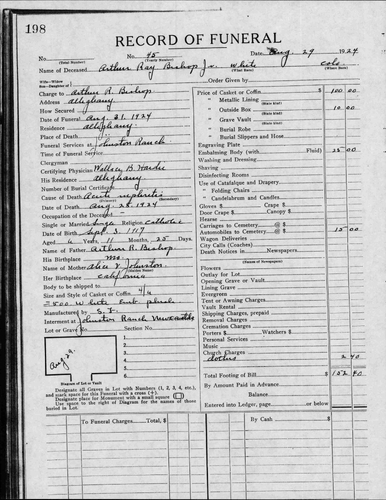 198
RECORD OF FUNERAL
No. 95 Date Aug. 29 1924
(Total Number) (Yearly Number)
Name of Deceased Arthur Ray Bishop Jr. White Colo
(What Race) (Where Born)
Wife—Widow
Son—Daughter of
Charge to Arthur R. Bishop
Address Alleghany
How Secured
Date of Funeral Aug. 31. 1924
Residence Alleghany
Place of Death
Funeral Services at Johnston Ranch
Time of Funeral Service
Clergyman
Certifying Physician
His Residence Alleghany
Number of Burial Certificate
Cause of Death Acute nephritis
(Primary) (Secondary)
Date of Death Aug. 28, 1924
Occupation of the Deceased
Single or Married Single Religion Catholic
Date of Birth Sept. 3. 1917
Aged 6 Years 11 Months 25 Days
Name of Father Arthur R. Bishop
His Birthplace Mo.
Name of Mother Alice V. Johnston
(Maiden Name)
Her Birthplace California
Body to be shipped to
Size and Style of Casket or Coffin 4/6
White plush
Manufactured by S. F.
Interment at Johnston Ranch Newcastle
Lot or Grave No. Section No.
Aug 29.
1.
2.
3.
4.
5.
6.
Diagram of Lot or Vault
Designate all Graves in Lot with Numbers (1, 2, 3, 4, etc.),
and mark space for this Funeral with a cross (+).
Designate place for Monument with a small square (□)
Use space to the right of Diagram for names of those
buried in Lot.
Order Given by
Price of Casket or Coffin $ 100 00
" Metallic Lining
(State Kind)
" Outside Box 10 00
(State Kind)
" Grave Vault
(State Kind)
" Burial Robe
(State Kind)
" Burial Slippers and Hose
Engraving Plate
Embalming Body (with Fluid) 25 00
Washing and Dressing
Shaving
Disinfecting Rooms
Use of Catafalque and Drapery
" Folding Chairs
" Candelabrum and Candles
Gloves $ Crape $
Door Crape $ Canopy $
Hearse
Carriages to Cemetery @ $
Automobiles to Cemetery @ $ 15 00
Wagon Deliveries
City Calls (Coaches)
Death Notices in Newspapers
(Names of Newspapers)
Flowers
Outlay for Lot
Opening Grave or Vault
Lining Grave
Evergreen
Tent or Awning Charges
Vault Rental
Shipping Charges, prepaid
Removal Charges
Cremation Charges
Porters $ Watchers $
Personal Services
Music
Church Charges
Clothes 2 40
Total Footing of Bill $ 152 40
By Amount Paid in Advance
Balance
Entered into Ledger, page or below.
To Funeral Charges Total, $ By Cash $